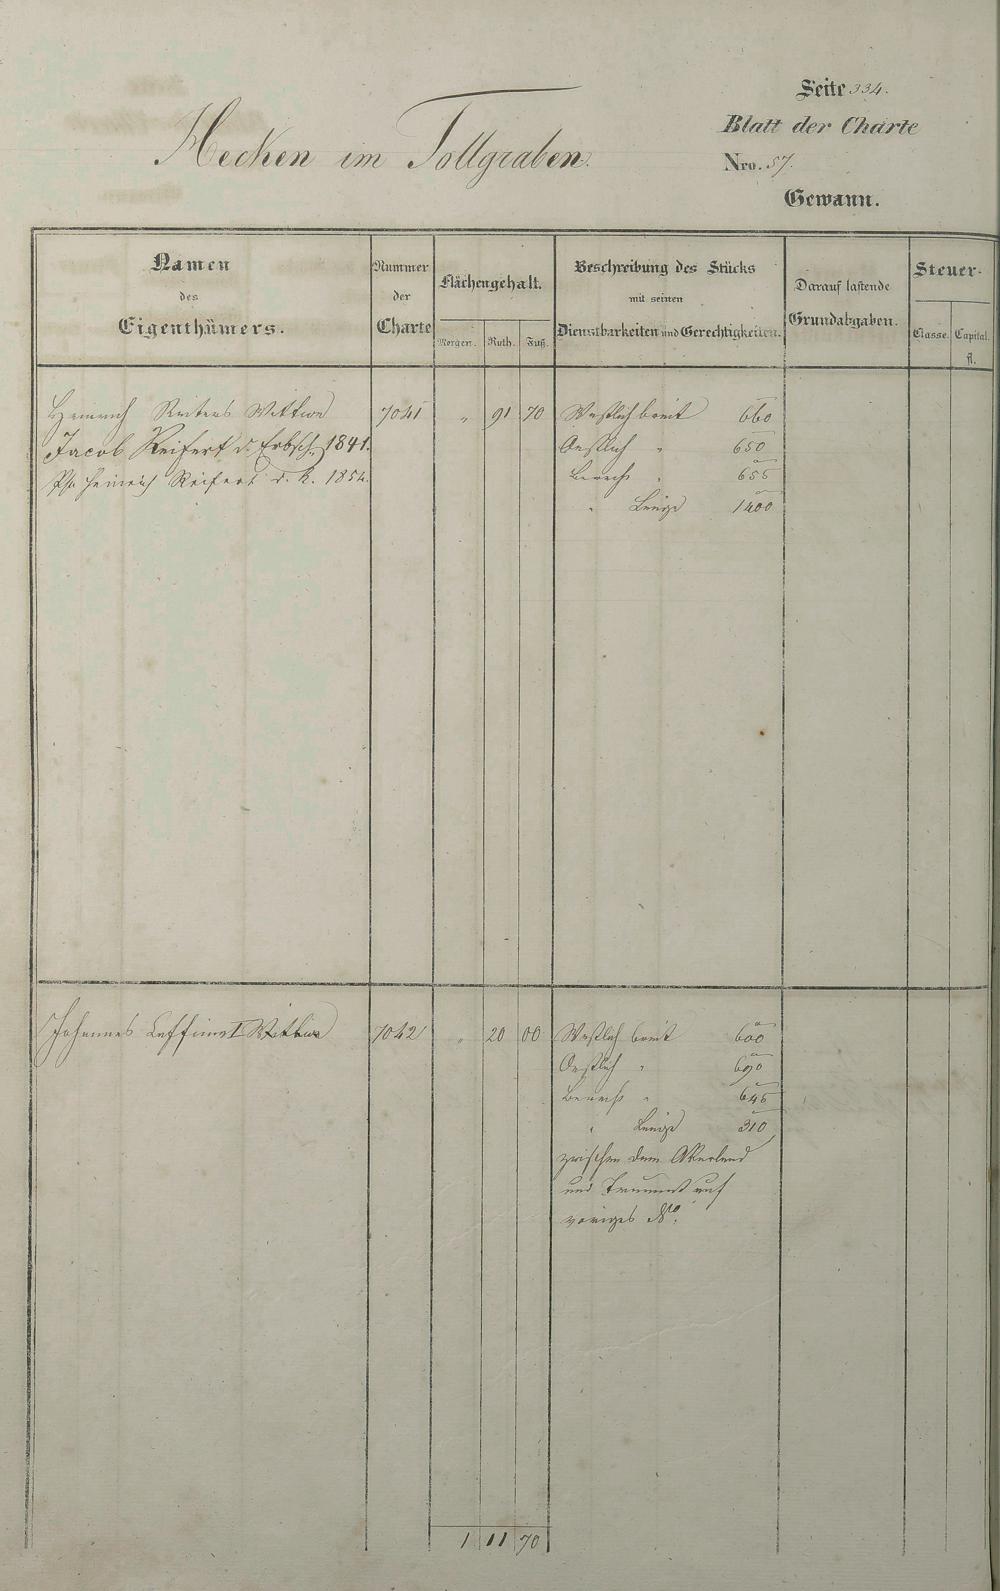 Hecken im Tollgraben.
Seite 334.
Blatt der Charte
Nro. 57.
Gewann.
Namen
des
Eigenthümers.
Nummer
der
Charte
Flächengehalt.
Morgen. Ruth. Fuß.
Beschreibung des Stücks
mit seinen
Dienstbarkeiten und Gerechtigkeiten.
Darauf lastende
Grundabgaben.
Steuer-
Classe. Capital.
fl.
Heinrich Reiters Wittwe 7041 " 91 70 Westlich breit 660
Jacob Reifert d. Erbsch. 1841. Oestlich " 650
Ph. Heinrich Reifert d. K. 1854. 655
" Länge 1400
Johannes I Wittwe 7042 " 20 00 Westlich breit 600
Oestlich " 690
" 645
" Länge 310
zwischen dem Ackerland
und auf
voriges No.
1 11 70